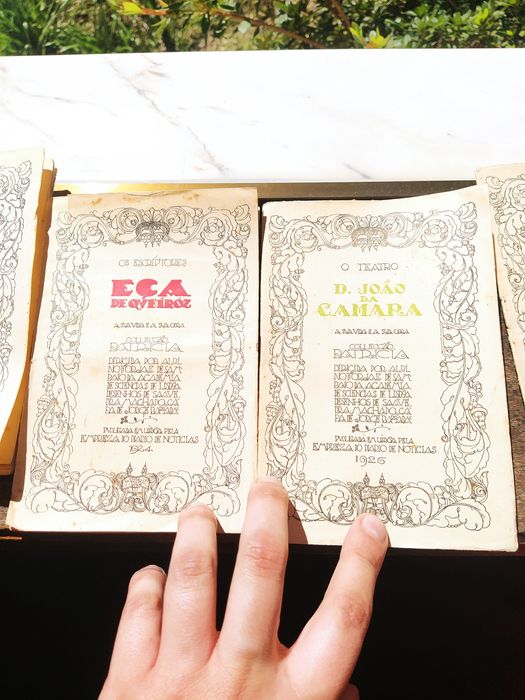 OS ESCRIPTORES
EÇA
DE QUEIROZ
A SUA VIDA E A SUA OBRA
COLECÇÃO
PATRICIA
DIRIGIDA POR ALBI
NO FORJAZ DE SAM
PAIO DA ACADEMIA
DE SCIENCIAS DE LISBOA
DESENHOS DE SAAVE
DRA MACHADO, CA
PA DE JORGE BARRADAS
PUBLICADA EM LISBOA PELA
EMPREZA DO DIARIO DE NOTICIAS
1924
O TEATRO
D. JOÃO
DA
CAMARA
A SUA VIDA E A SUA OBRA
COLECÇÃO
PATRICIA
DIRIGIDA POR ALBI
NO FORJAZ DE SAM
PAIO DA ACADEMIA
DE SCIENCIAS DE LISBOA
DESENHOS DE SAAVE
DRA MACHADO, CA
PA DE JORGE BARRADAS
PUBLICADA EM LISBOA PELA
EMPREZA DO DIARIO DE NOTICIAS
1926